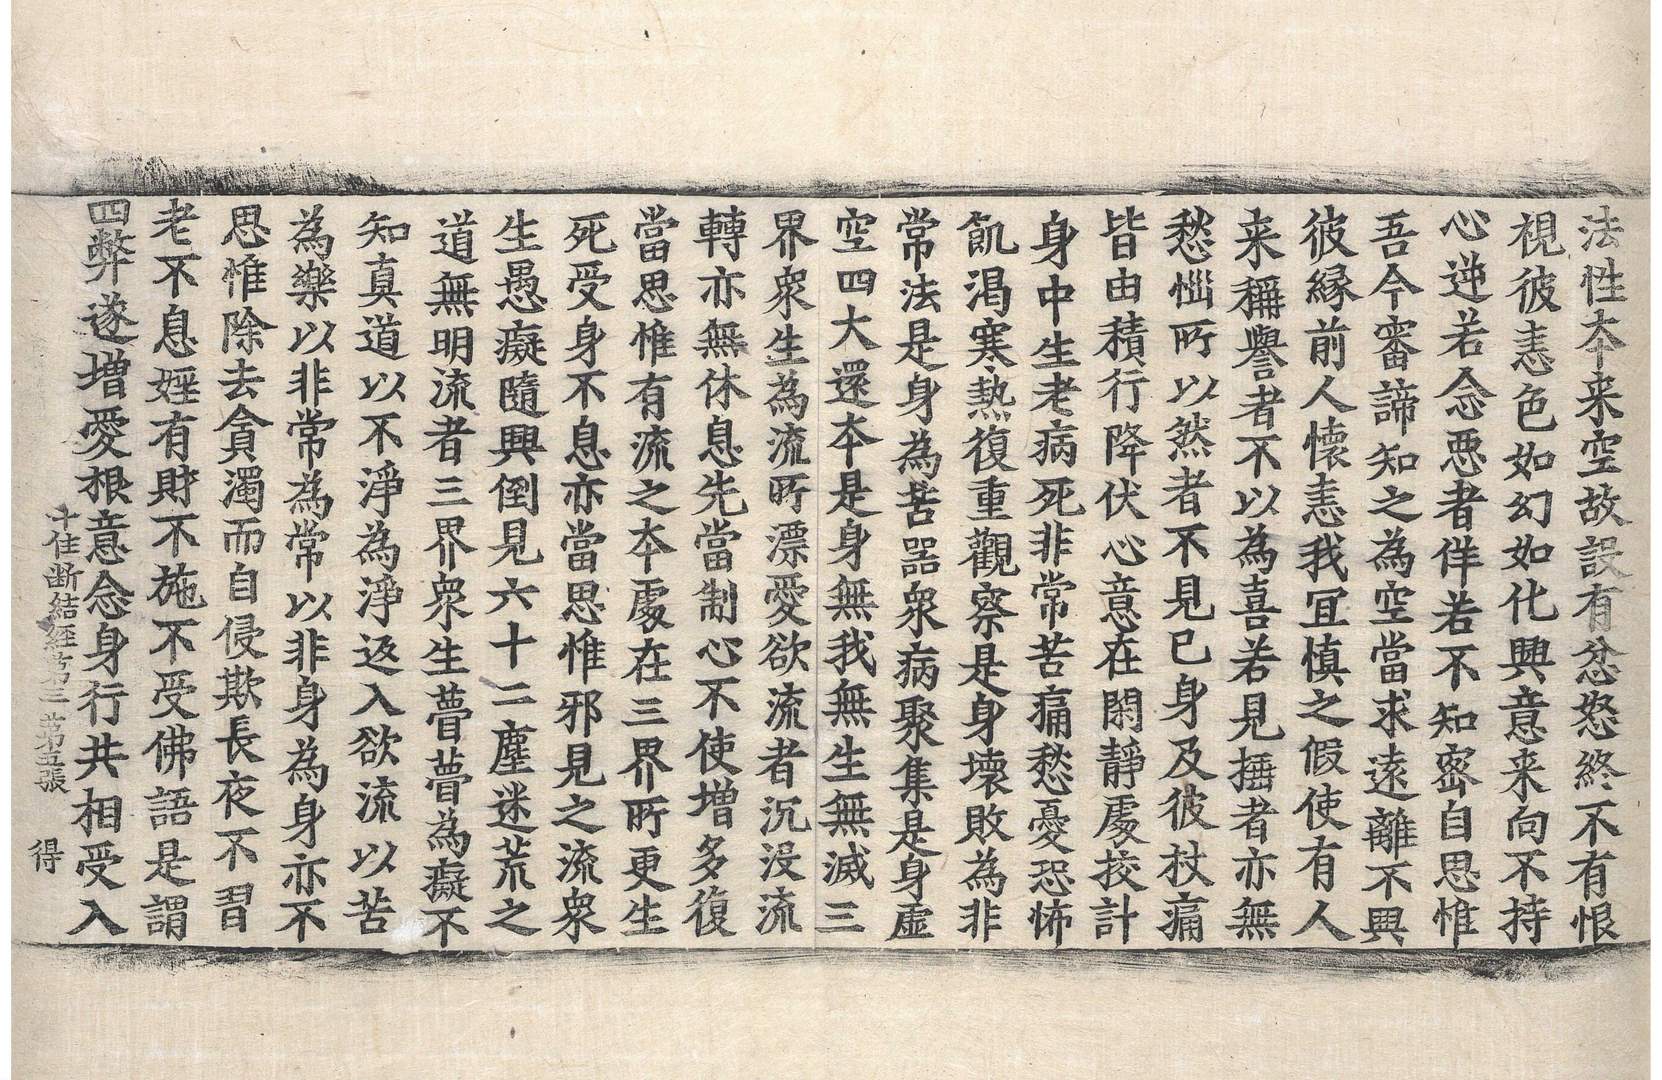 法性本来空故設有忿怒終不有恨
視彼恚色如幻如化興意来向不持
心逆若念惡者佯若不知密自思惟
吾今審諦知之為空當求遠離不興
彼縁前人懷恚我冝慎之假使有人
来稱譽者不以為喜若見捶者亦無
愁惱所以然者不見已身及彼杖痛
皆由積行降伏心意在閑靜處挍計
身中生老病死非常苦痛愁憂恐怖
飢渴寒熱復重觀察是身壞敗為非
常法是身為苦器衆病聚集是身虛
空四大還本是身無我無生無滅三
界衆生為流所漂愛欲流者沉没流
轉亦無休息先當制心不使增多復
當思惟有流之本處在三界所更生
死受身不息亦當思惟邪見之流衆
生愚癡隨興倒見六十二塵迷荒之
道無明流者三界衆生瞢瞢為癡不
知真道以不淨為淨返入欲流以苦
為樂以非常為常以非身為身亦不
思惟除去貪濁而自侵欺長夜不習
老不息婬有財不施不受佛語是謂
四弊遂增愛根意念身行共相受入
十住断結經苐三 苐五張 得